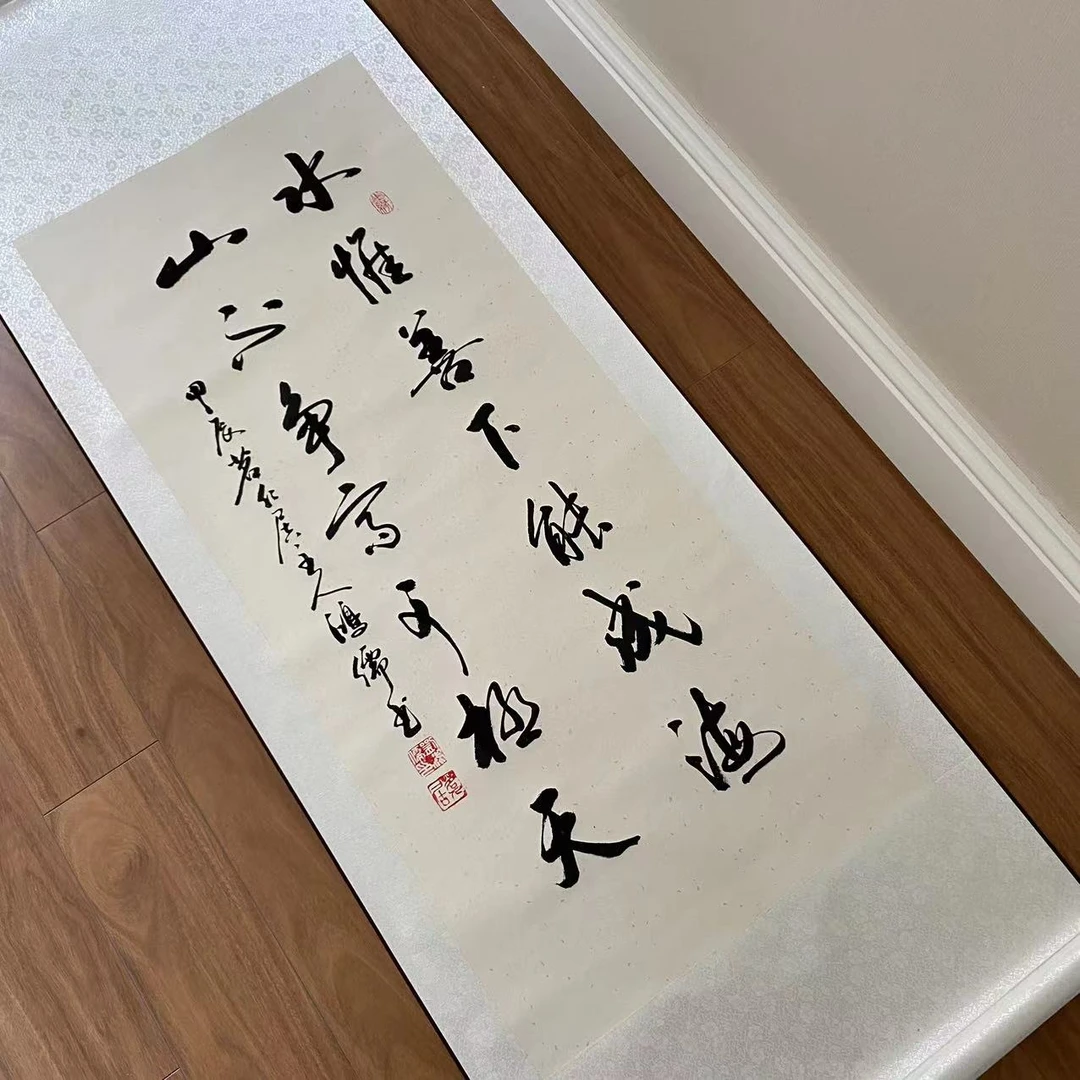 水惟善下能成海
山不争高自极天
甲辰茗仁居主人鸿儒书